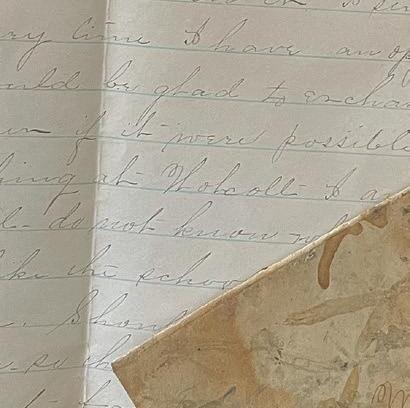 ry time I have an op
uld be glad to excha
if it were possible
hing at Wolcott I a
do not know
like the schoo
Shou